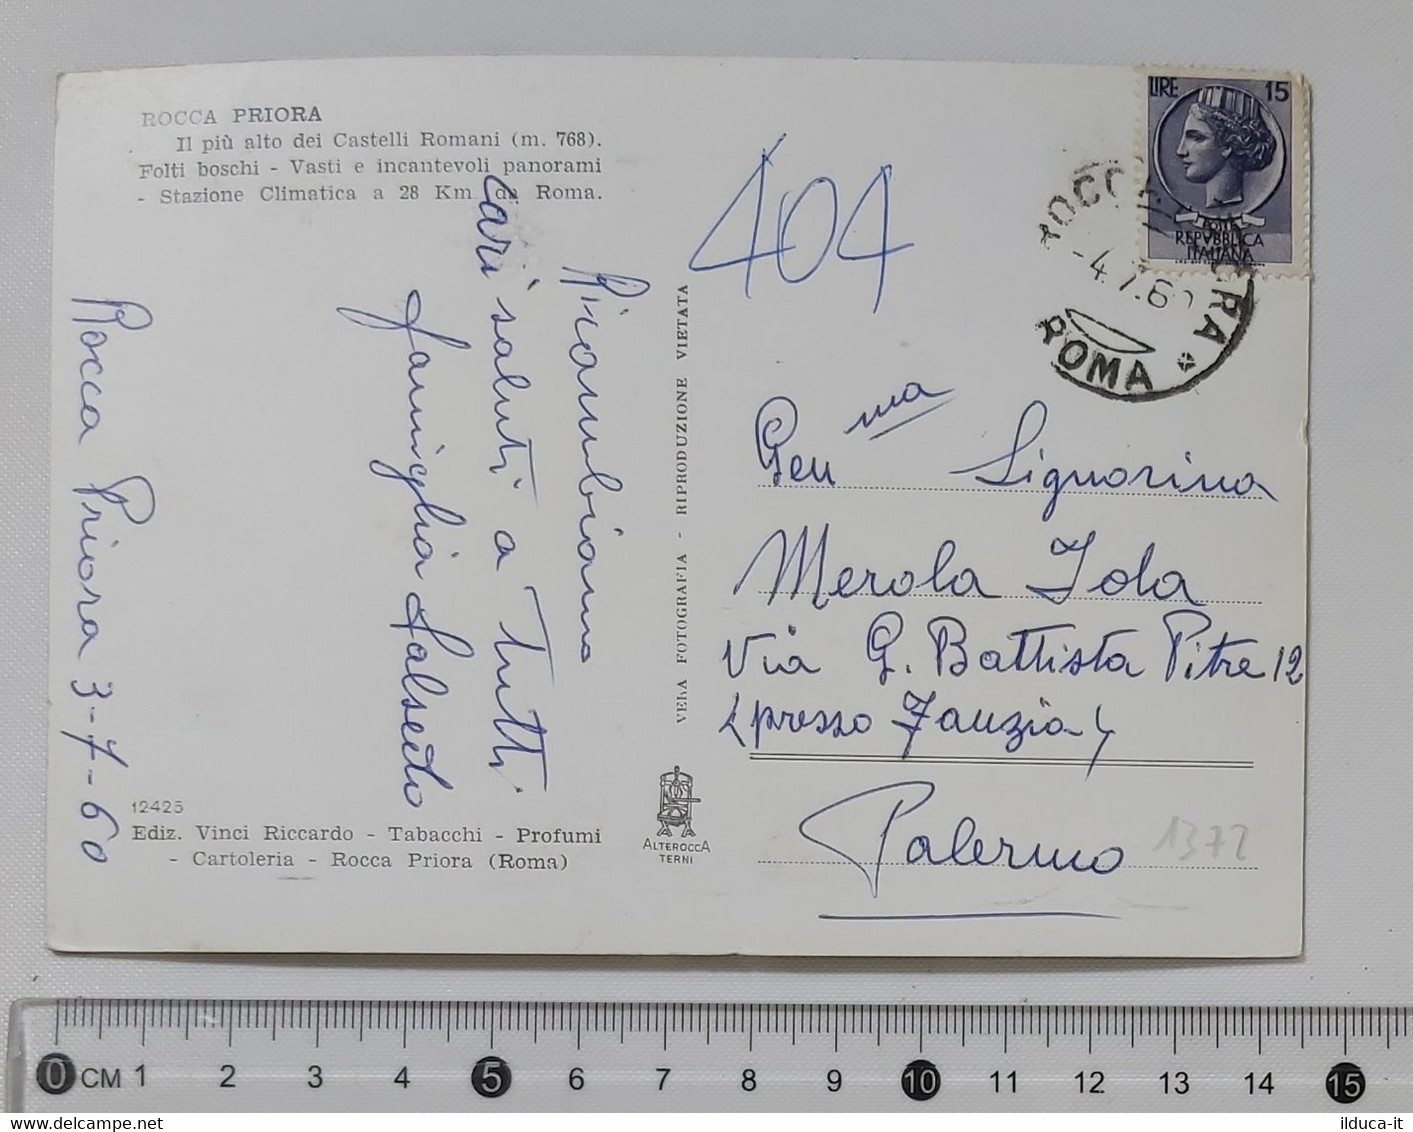 ROCCA PRIORA
Il più alto dei Castelli Romani (m. 768).
Folti boschi - Vasti e incantevoli panorami
- Stazione Climatica a 28 Km da Roma.
Ricambiamo
cari saluti a Tutti
Famiglia Salsedo
Rocca Priora 3-7-60
12425
Ediz. Vinci Riccardo - Tabacchi - Profumi
- Cartoleria - Rocca Priora (Roma)
VERA FOTOGRAFIA - RIPRODUZIONE VIETATA
ALTEROCCA
TERNI
404
LIRE 15
POSTE
REPVBBLICA
ITALIANA
-4.7.60
ROMA
Gen ma Signorina
Merola Iola
Via G. Battista Pitre 12
(presso Fauzia)
Palermo
1372
0 CM 1 2 3 4 5 6 7 8 9 10 11 12 13 14 15
ilduca-it